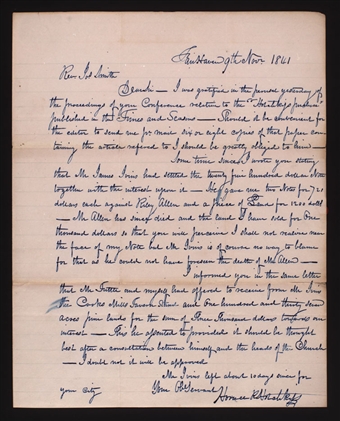 Fair Haven 9th Novr 1841
Rev. Jos Smith
Dear Sir — I was gratified in the perusal yesterday of
the proceedings of your Conference relative to the "Hotchkiss purchase"
published in the Times and Seasons — Should it be convenient for
the editor to send me pr mail six or eight copies of that paper con
taining the article referred to I should be greatly obliged to him —
Some time since I wrote you stating
that Mr James Ivins had settled the twenty five hundred dollar Note
together with the interest upon it — He gave me two Notes for
dollars each against Riley Allen and a place of for 1200 doll
— Mr Allen has since died and the land I have sold for One
thousand dollars so that you will perceive I shall not receive near
the face of my Note but Mr Ivins is of course no way to blame
for that as he could not have foreseen the death of Mr Allen —
I informed you in the same letter
that Mr Tuttle and myself had offered to receive from Mr Ivins
the Cookes Mills and One hundred and thirty
acres pine lands for the sum of Three Thousand dollars towards our
interest — This he assented to provided it should be thought
best after a consultation between himself and the heads of the Church
— I doubt not it will be approved
Mr Ivins left about ago for
your City Your Obt Servant Horace R Hotchkiss